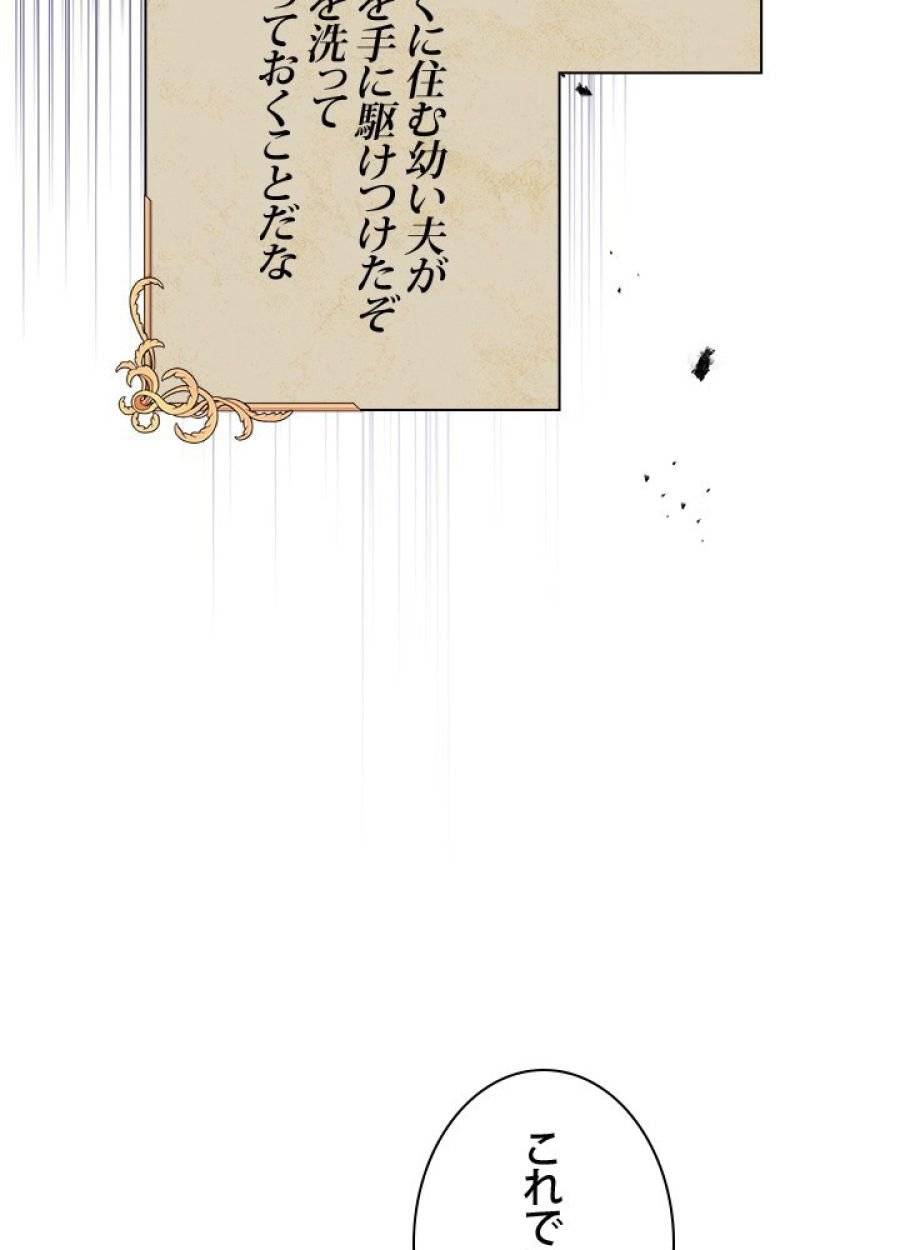 くに住む幼い夫が
を手に駆けつけたぞ
を洗って
っておくことだな
これで